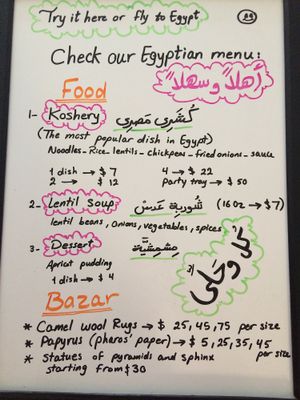 Try it here or fly to Egypt
29
Check our Egyptian menu:
أهلاً وسهلاً
Food
1- Koshery كُشَرِي مَصرِي
(The most popular dish in Egypt)
Noodles - Rice - lentils - chickpeas - fried onions - sauce
1 dish → $ 7 4 → $ 22
2 → $ 12 Party tray → $ 50
2- Lentil Soup شُوربة عَدس (16 oz → $7)
lentil beans, onions, vegetables, spices
3- Dessert مِشمِشيَّة
Apricot pudding
1 dish → $ 4
كُل وحَلّى
Bazar
* Camel wool Rugs → $ 25, 45, 75 per size
* Papyrus (pharos' paper) → $ 5, 25, 35, 45 per size
* Statues of pyramids and sphinx
starting from $30